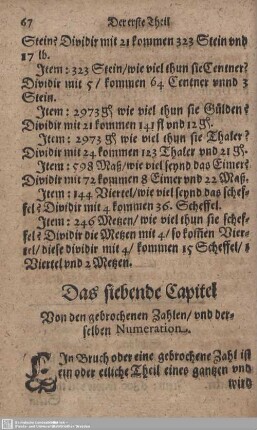 67 Der erste Theil
Stein? Dividir mit 21 kommen 323 Stein vnd
17 lb.
Item: 323 Stein/wie viel thun sie Centner?
Dividir mit 5/ kommen 64 Centner vnnd 3
Stein.
Item: 2973 gʒ wie viel thun sie Gülden?
Dividir mit 21 kommen 141 fl vnd 12 gʒ.
Item: 2973 gʒ wie viel thun sie Thaler?
Dividir mit 24 kommen 123 Thaler vnd 21 gʒ.
Item: 598 Maß/wie viel seynd das Eimer?
Dividir mit 72 kommen 8 Eimer vnd 22 Maß.
Item: 144 Viertel/wie viel seynd das schef-
fel? Dividir mit 4 kommen 36. Scheffel.
Item: 246 Metzen/wie viel thun sie schef-
fel? Dividir die Metzen mit 4/ so kom̃en Vier-
tel/diese dividir mit 4/ kommen 15 Scheffel/ 1
Viertel vnd 2 Metzen.
Das siebende Capitel
Von den gebrochenen Zahlen/ vnd der-
selben Numeration.
EIn Bruch oder eine gebrochene Zahl ist
ein oder etliche Theil eines gantzen vnd
wird